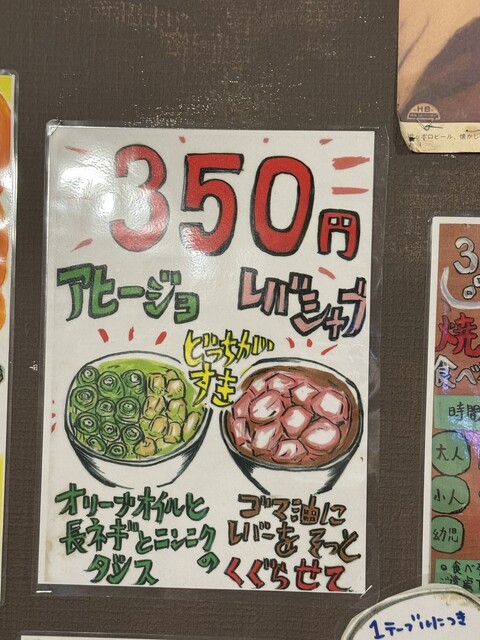 350円
アヒージョ
レバシャブ
どっちが
すき
オリーブオイルと
長ネギとニンニク
の
ダンス
ゴマ油に
レバーをそっと
くぐらせて
HB
3
焼
食べ
時間
大人
小人
幼児
1テーブルにつき